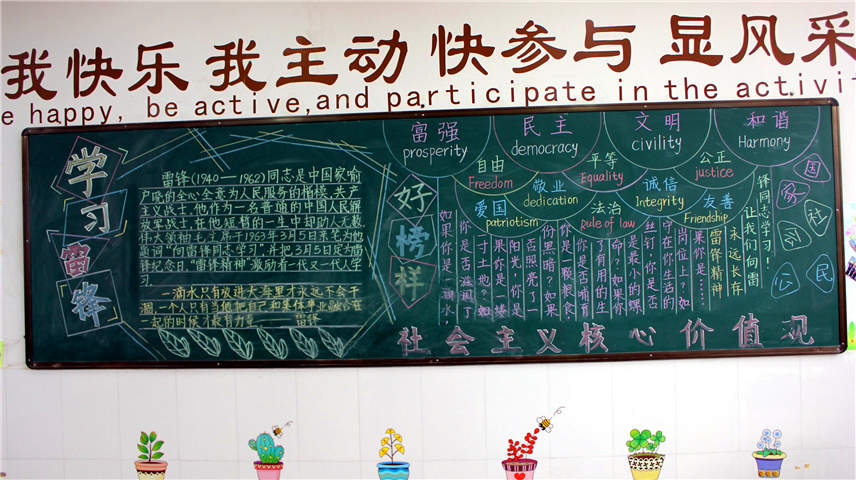 我快乐 我主动 快参与 显风采
e happy, be active,and participate in the activi
学习雷锋
雷锋(1940—1962)同志是中国家喻
户晓的全心全意为人民服务的楷模,共产
主义战士,他作为一名普通的中国人民解
放军战士在他短暂的一生中却助人无数
伟大领袖毛主席于1963年3月5日亲笔为他
题词"向雷锋同志学习",并把3月5日定为雷
锋纪念日,"雷锋精神"激励着一代又一代人学
习。
一滴水只有放进大海里才永远不会干
涸,一个人只有当他把自己和集体事业融合在
一起的时候才最有力量 —— 雷锋
好榜样
富强
prosperity
民主
democracy
文明
civility
和谐
Harmony
自由
Freedom
平等
Equality
公正
justice
爱国
patriotism
敬业
dedication
法治
Rule of law
诚信
Integrity
友善
Friendship
锋同志学习!
让我们向雷
永远长存
雷锋精神
果你是……
岗位上?如
守在你生活的
丝钉,你是否
是最小的螺
命?如果你
了有用的生
是否哺育
你是一颗粮食
份黑暗?如果
否照亮了一
阳光,你是
果你是一缕
寸土地?如
你是否滋润了
如果你是一滴水,
国家
社会
公民
社会主义核心价值观